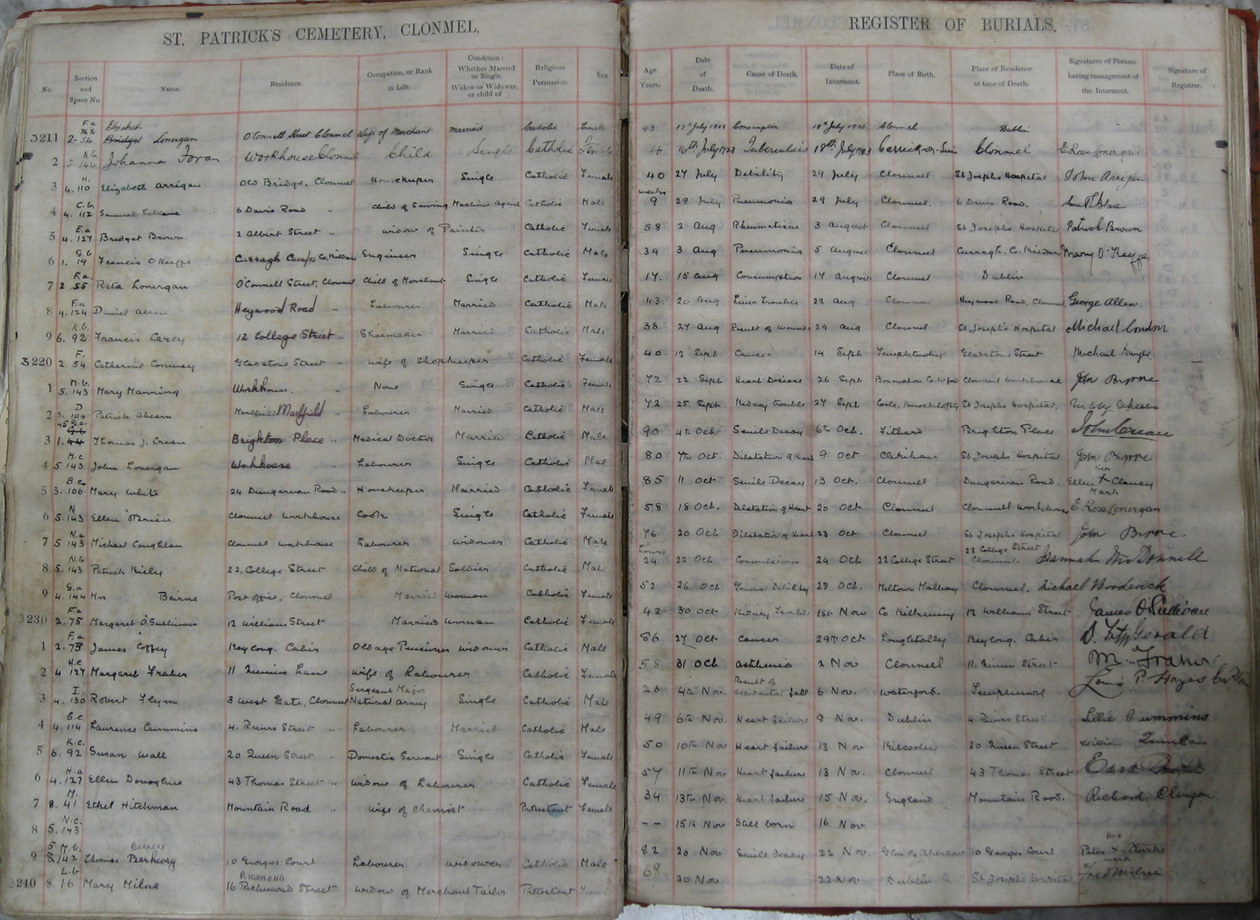 ST. PATRICK'S CEMETERY, CLONMEL. REGISTER OF BURIALS.
No. Section and Space No. Name. Residence. Occupation, or Rank in Life. Condition: Whether Married or Single. Widow or Widower, or child of Religious Persuasion. Sex Age Years. Date of Death. Cause of Death. Date of Interment. Place of Birth. Place of Residence at time of Death. Signatures of Persons having management of the Interment. Signature of Registrar.
3211 2. 54 Bridget Lonergan O'Connell Street Clonmel Wife of Merchant Married Catholic Female 17th July 1923 Consumption 18th July 1923 Clonmel Dublin
2 Johanna Foran Workhouse Clonmel Child Single Catholic Female 4 16th July 1923 Tuberculosis 18th July 1923 Carrick-on-Suir Clonmel E. Rose Lonergan
3 4. 110 Elizabeth Arrigan Old Bridge, Clonmel Housekeeper Single Catholic Female 40 27 July Debility 29 July Clonmel St Josephs Hospital John Arrigan
4 4. 112 Samuel 6 Davis Road " Child of Sewing Machine Agent Catholic Male weeks 9 28 July Pneumonia 29 July Clonmel 6 Davis Road.
5 4. 127 Bridget Brown 2 Albert Street " Widow of Painter Catholic Female 58 2 Aug Rheumatism 3 August Clonmel St Josephs Hospital Patrick Brown
6 1. 19 Francis O'Keeffe Curragh Camp Co Kildare Engineer Single Catholic Male 34 3 Aug Pneumonia 5 August Clonmel Curragh. Co. Kildare Mary O'Keeffe
7 2 55 Rita Lonergan O'Connell Street, Clonmel Child of Merchant Single Catholic Female 17. 15 Aug Consumption 17 August Clonmel Dublin
8 4. 124 Daniel Allen Heywood Road " Labourer Married Catholic Male 43. 20 Aug Liver Trouble 22 Aug Clonmel Heywood Road, Clonmel George Allen
9 6. 92 Francis Carey 12 College Street " Shoemaker Married Catholic Male 38 27 Aug Result of Wounds 29 Aug Clonmel St Josephs Hospital Michael Condon
3220 2. 54 Catherine Conway Gladstone Street " Wife of Shopkeeper Catholic Female 40 12 Sept Cancer 14 Sept Templetuohy Gladstone Street Michael
1 5. 143 Mary Manning Workhouse " None Single Catholic Female 72 22 Sept Heart Disease 26 Sept Clonmel Workhouse Jon Byrne
2 3. 104 Patrick Ahearn Marlfield " Labourer Married Catholic Male 72 25 Sept Kidney trouble 27 Sept St Josephs Hospital,
3 1. Thomas J. Crean Brighton Place " Medical Doctor Married Catholic Male 90 4th Oct Senile Decay 6th Oct. Lisbard Brighton Place John Crean
4 5 143 John Lonergan Workhouse " Labourer Single Catholic Male 80 7th Oct Dilatation of Heart 9 Oct Clerihan St Josephs Hospital Jon Byrne
5 3. 106 Mary White 24 Dungarvan Road " Housekeeper Married Catholic Female 85 11 Oct Senile Decay 13 Oct. Clonmel Dungarvan Road. Ellen X Clancy her Mark
6 5. 143 Ellen O'Brien Clonmel Workhouse Cook Single Catholic Female 58 18 Oct Dilatation of Heart 20 Oct Clonmel Clonmel Workhouse E. Rose Lonergan
7 5 143 Michael Coughlan Clonmel Workhouse Labourer Widower Catholic Male 76 20 Oct Dilatation of Heart 23 Oct Clonmel St Josephs Hospital Jon Byrne
8 5. 143 Patrick Kiely 22, College Street Child of National Soldier Catholic Male hours 24 22 Oct Convulsions 24 Oct 22 College Street 22 College Street Clonmel. Hannah McDonnell
9 4. 144 Mrs Beirne Post Office, Clonmel Married Woman Catholic Female 52 26 Oct General Debility 28 Oct. Mallow Clonmel. Michael
3230 2. 75 Margaret O'Sullivan 12 William Street Married Woman Catholic Female 42 30 Oct Kidney Trouble 1st Nov Co Kilkenny 12 William Street James O'Sullivan
1 2. 78 James Keylong. Cahir Old age Pensioner Widower Catholic Male 86 27 Oct Cancer 29th Oct Keylong. Cahir D. FitzGerald
2 4 127 Margaret Fraher 11 Lane Wife of Labourer Catholic Female 58 31 Oct Asthenia 2 Nov Clonmel 11. Street M. Fraher
3 4. 130 Robert Flynn 3 West Gate, Clonmel Sergeant Major National Army Single Catholic Male 4th Nov. Result of accidental fall 6 Nov. Waterford. Templemore Louis P. Hayes
4 4. 114 Laurence Cummins 4. Street " Labourer Married Catholic Male 49 6th Nov. Heart failure 9 Nov. Dublin 4 Street Lillie Cummins
5 6. 92 Susan Wall 20 Queen Street " Domestic Servant Single Catholic Female 50 10th Nov Heart failure 13 Nov 20 Queen Street William Quinlan
6 4. 127 Ellen Donoghue 43 Thomas Street " Widow of Labourer Catholic Female 57 11th Nov Heart failure 13 Nov. Clonmel 43 Thomas Street
7 8. 41 Ethel Hitchman Mountain Road " Wife of Chemist Protestant Female 34 13th Nov Heart failure 15 Nov. England Mountain Road. Richard
8 5. 143 -- 15th Nov Still born 16 Nov
9 142 Thomas Berkery 10 Georges Court Labourer Widower Catholic Male 82 20 Nov Senile Decay 22 Nov. Glen of Aherlow 10 Georges Court
3240 8. 16 Mary Milne 16 Richmond Street " Widow of Merchant Tailor Protestant 69 20 Nov 22 Nov Dublin St Josephs Hospital Fred Milne